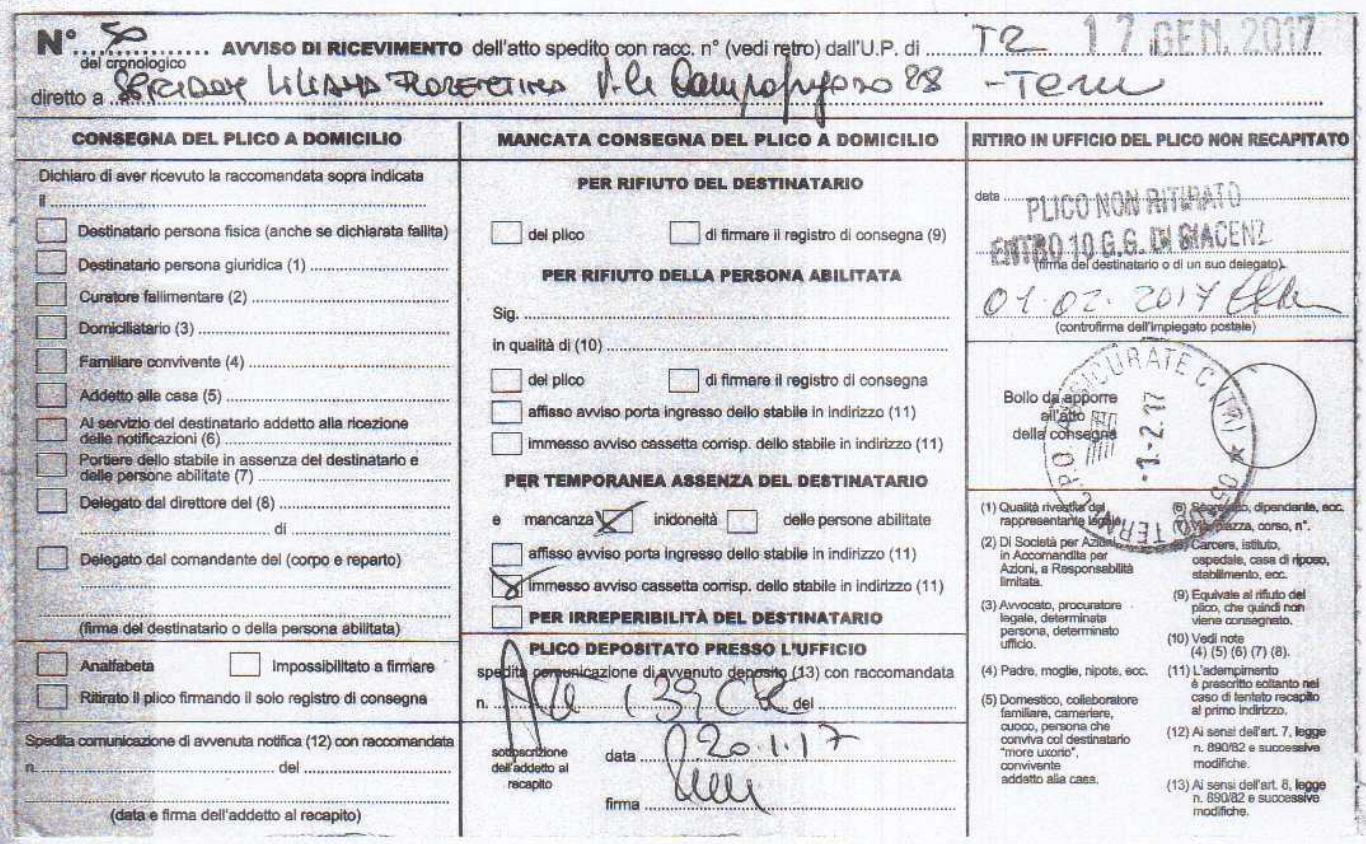 N° 50 AVVISO DI RICEVIMENTO dell'atto spedito con racc. n° (vedi retro) dall'U.P. di TR 17 GEN. 2017
del cronologico
diretto a LILIANA FLORENTINA V.le Campofregoso 88 - Terni
CONSEGNA DEL PLICO A DOMICILIO
Dichiaro di aver ricevuto la raccomandata sopra indicata
il
Destinatario persona fisica (anche se dichiarata fallita)
Destinatario persona giuridica (1)
Curatore fallimentare (2)
Domiciliatario (3)
Familiare convivente (4)
Addetto alla casa (5)
Al servizio del destinatario addetto alla ricezione
delle notificazioni (6)
Portiere dello stabile in assenza del destinatario e
delle persone abilitate (7)
Delegato dal direttore del (8)
di
Delegato dal comandante del (corpo e reparto)
(firma del destinatario o della persona abilitata)
Analfabeta Impossibilitato a firmare
Ritirato il plico firmando il solo registro di consegna
Spedita comunicazione di avvenuta notifica (12) con raccomandata
n. del
(data e firma dell'addetto al recapito)
MANCATA CONSEGNA DEL PLICO A DOMICILIO
PER RIFIUTO DEL DESTINATARIO
del plico di firmare il registro di consegna (9)
PER RIFIUTO DELLA PERSONA ABILITATA
Sig.
in qualità di (10)
del plico di firmare il registro di consegna
affisso avviso porta ingresso dello stabile in indirizzo (11)
immesso avviso cassetta corrisp. dello stabile in indirizzo (11)
PER TEMPORANEA ASSENZA DEL DESTINATARIO
e mancanza inidoneità delle persone abilitate
affisso avviso porta ingresso dello stabile in indirizzo (11)
immesso avviso cassetta corrisp. dello stabile in indirizzo (11)
PER IRREPERIBILITÀ DEL DESTINATARIO
PLICO DEPOSITATO PRESSO L'UFFICIO
spedita comunicazione di avvenuto deposito (13) con raccomandata
n. del
sottoscrizione
dell'addetto al
recapito
data 20.1.17
firma
RITIRO IN UFFICIO DEL PLICO NON RECAPITATO
data
PLICO NON RITIRATO
ENTRO 10 G.G. DI GIACENZ
(firma del destinatario o di un suo delegato)
01.02.2017
(controfirma dell'impiegato postale)
Bollo da apporre
all'atto
della consegna
ASSICURATE
-1.-2.17
TERNI
(1) Qualità rivestita dal
rappresentante legale.
(2) Di Società per Azioni,
in Accomandita per
Azioni, a Responsabilità
limitata.
(3) Avvocato, procuratore
legale, determinata
persona, determinato
ufficio.
(4) Padre, moglie, nipote, ecc.
(5) Domestico, collaboratore
familiare, cameriere,
cuoco, persona che
conviva col destinatario
"more uxorio",
convivente
addetto alla casa.
(6) Segretario, dipendente, ecc.
(7) Via, piazza, corso, n°.
(8) Carcere, istituto,
ospedale, casa di riposo,
stabilimento, ecc.
(9) Equivale al rifiuto del
plico, che quindi non
viene consegnato.
(10) Vedi note
(4) (5) (6) (7) (8).
(11) L'adempimento
è prescritto soltanto nel
caso di tentato recapito
al primo indirizzo.
(12) Ai sensi dell'art. 7, legge
n. 890/82 e successive
modifiche.
(13) Ai sensi dell'art. 8, legge
n. 890/82 e successive
modifiche.